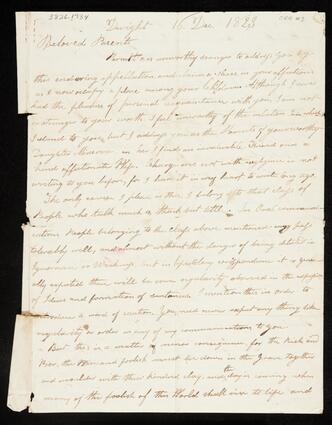 3826.5984
Dwight 16 Dec 1823
Beloved Parents
Permit an unworthy stranger to address you by
this endearing appellation and claim a share in your affections
as I now occupy a place among your Although I never
had the pleasure of personal acquaintance with you I am not
a stranger to your worth I feel unworthy of the relation in which
I stand to you, but I address you as the Parents of your worthy
Daughter However in her I find an invaluable friend and a
kind affectionate Wife. Charge me not with negligence in not
writing to you before, for I have it in my heart to write long ago.
The only excuse I plead is this, I belong to that class of
People who talk much & think but little. In Oral communi
cations People belonging to the class above mentioned may pass
tolerably well, and almost without the danger of being detected in
Ignorance or Weakness, but in Epistolary correspondence it is gene
rally expected there will be some regularity observed in the
of Ideas and formation of sentences I mention this in order to
introduce a word of caution. You need never expect any thing like
regularity or order in any of my communications to you
But this is a matter of minor consequence for the Rich and
Poor, the Wise and foolish must lie down in the Grave together
and moulder with their kindred clay. and the day is coming when
many of the foolish of this World shall rise to life and